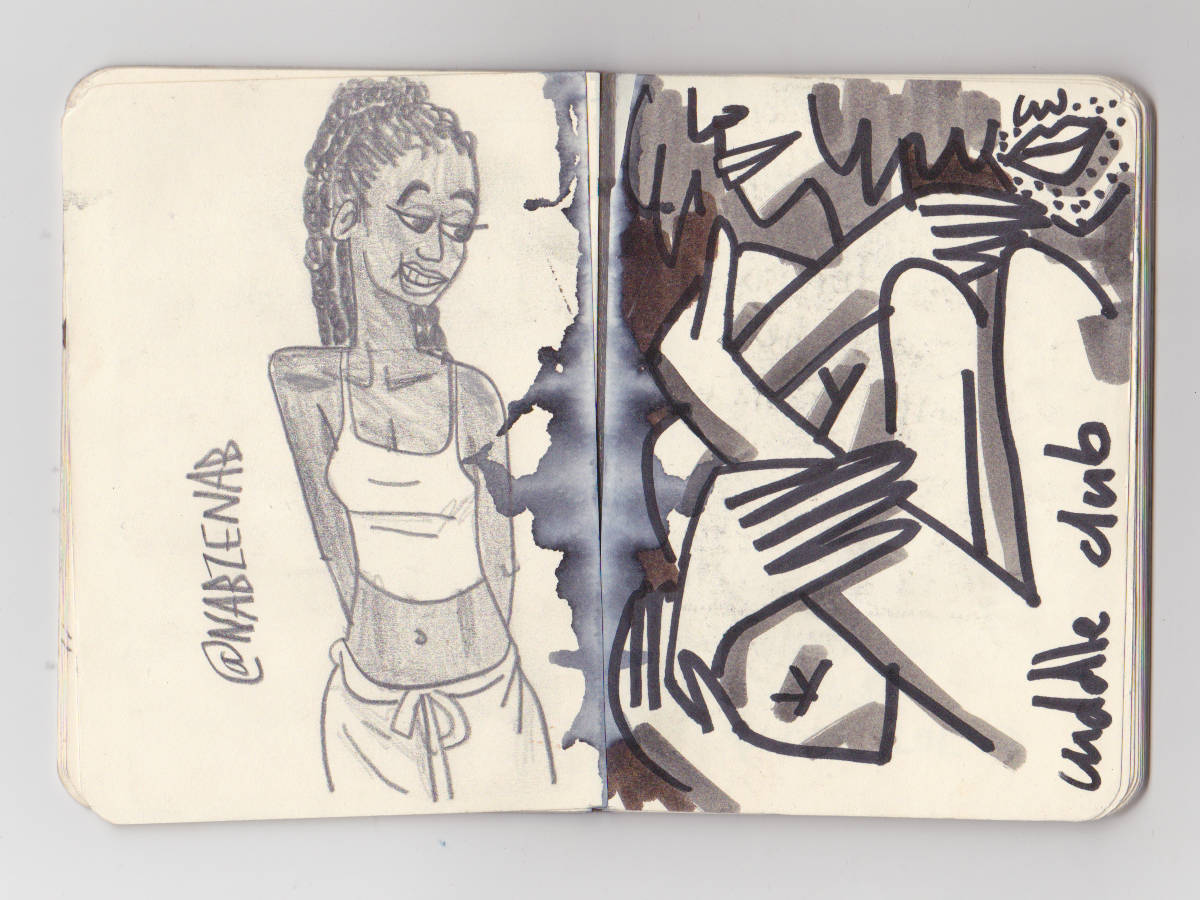 @NABZENAB
cuddle club